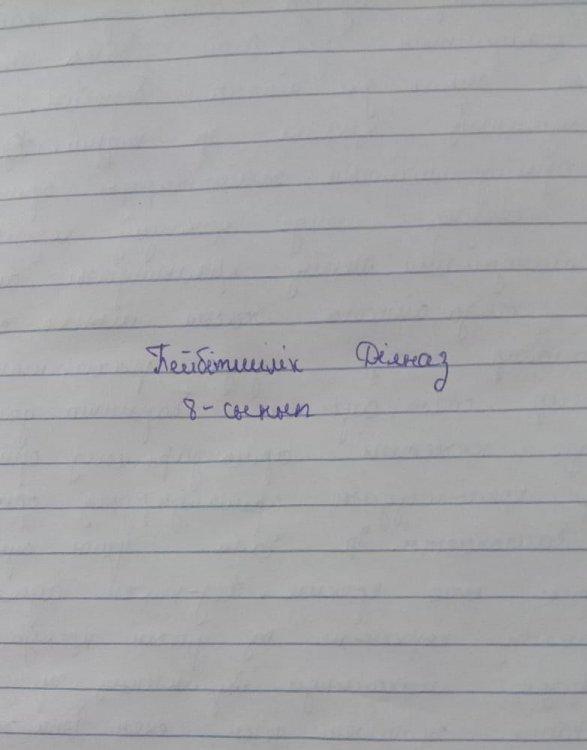 Бейбітшілік Ділназ
8-сынып